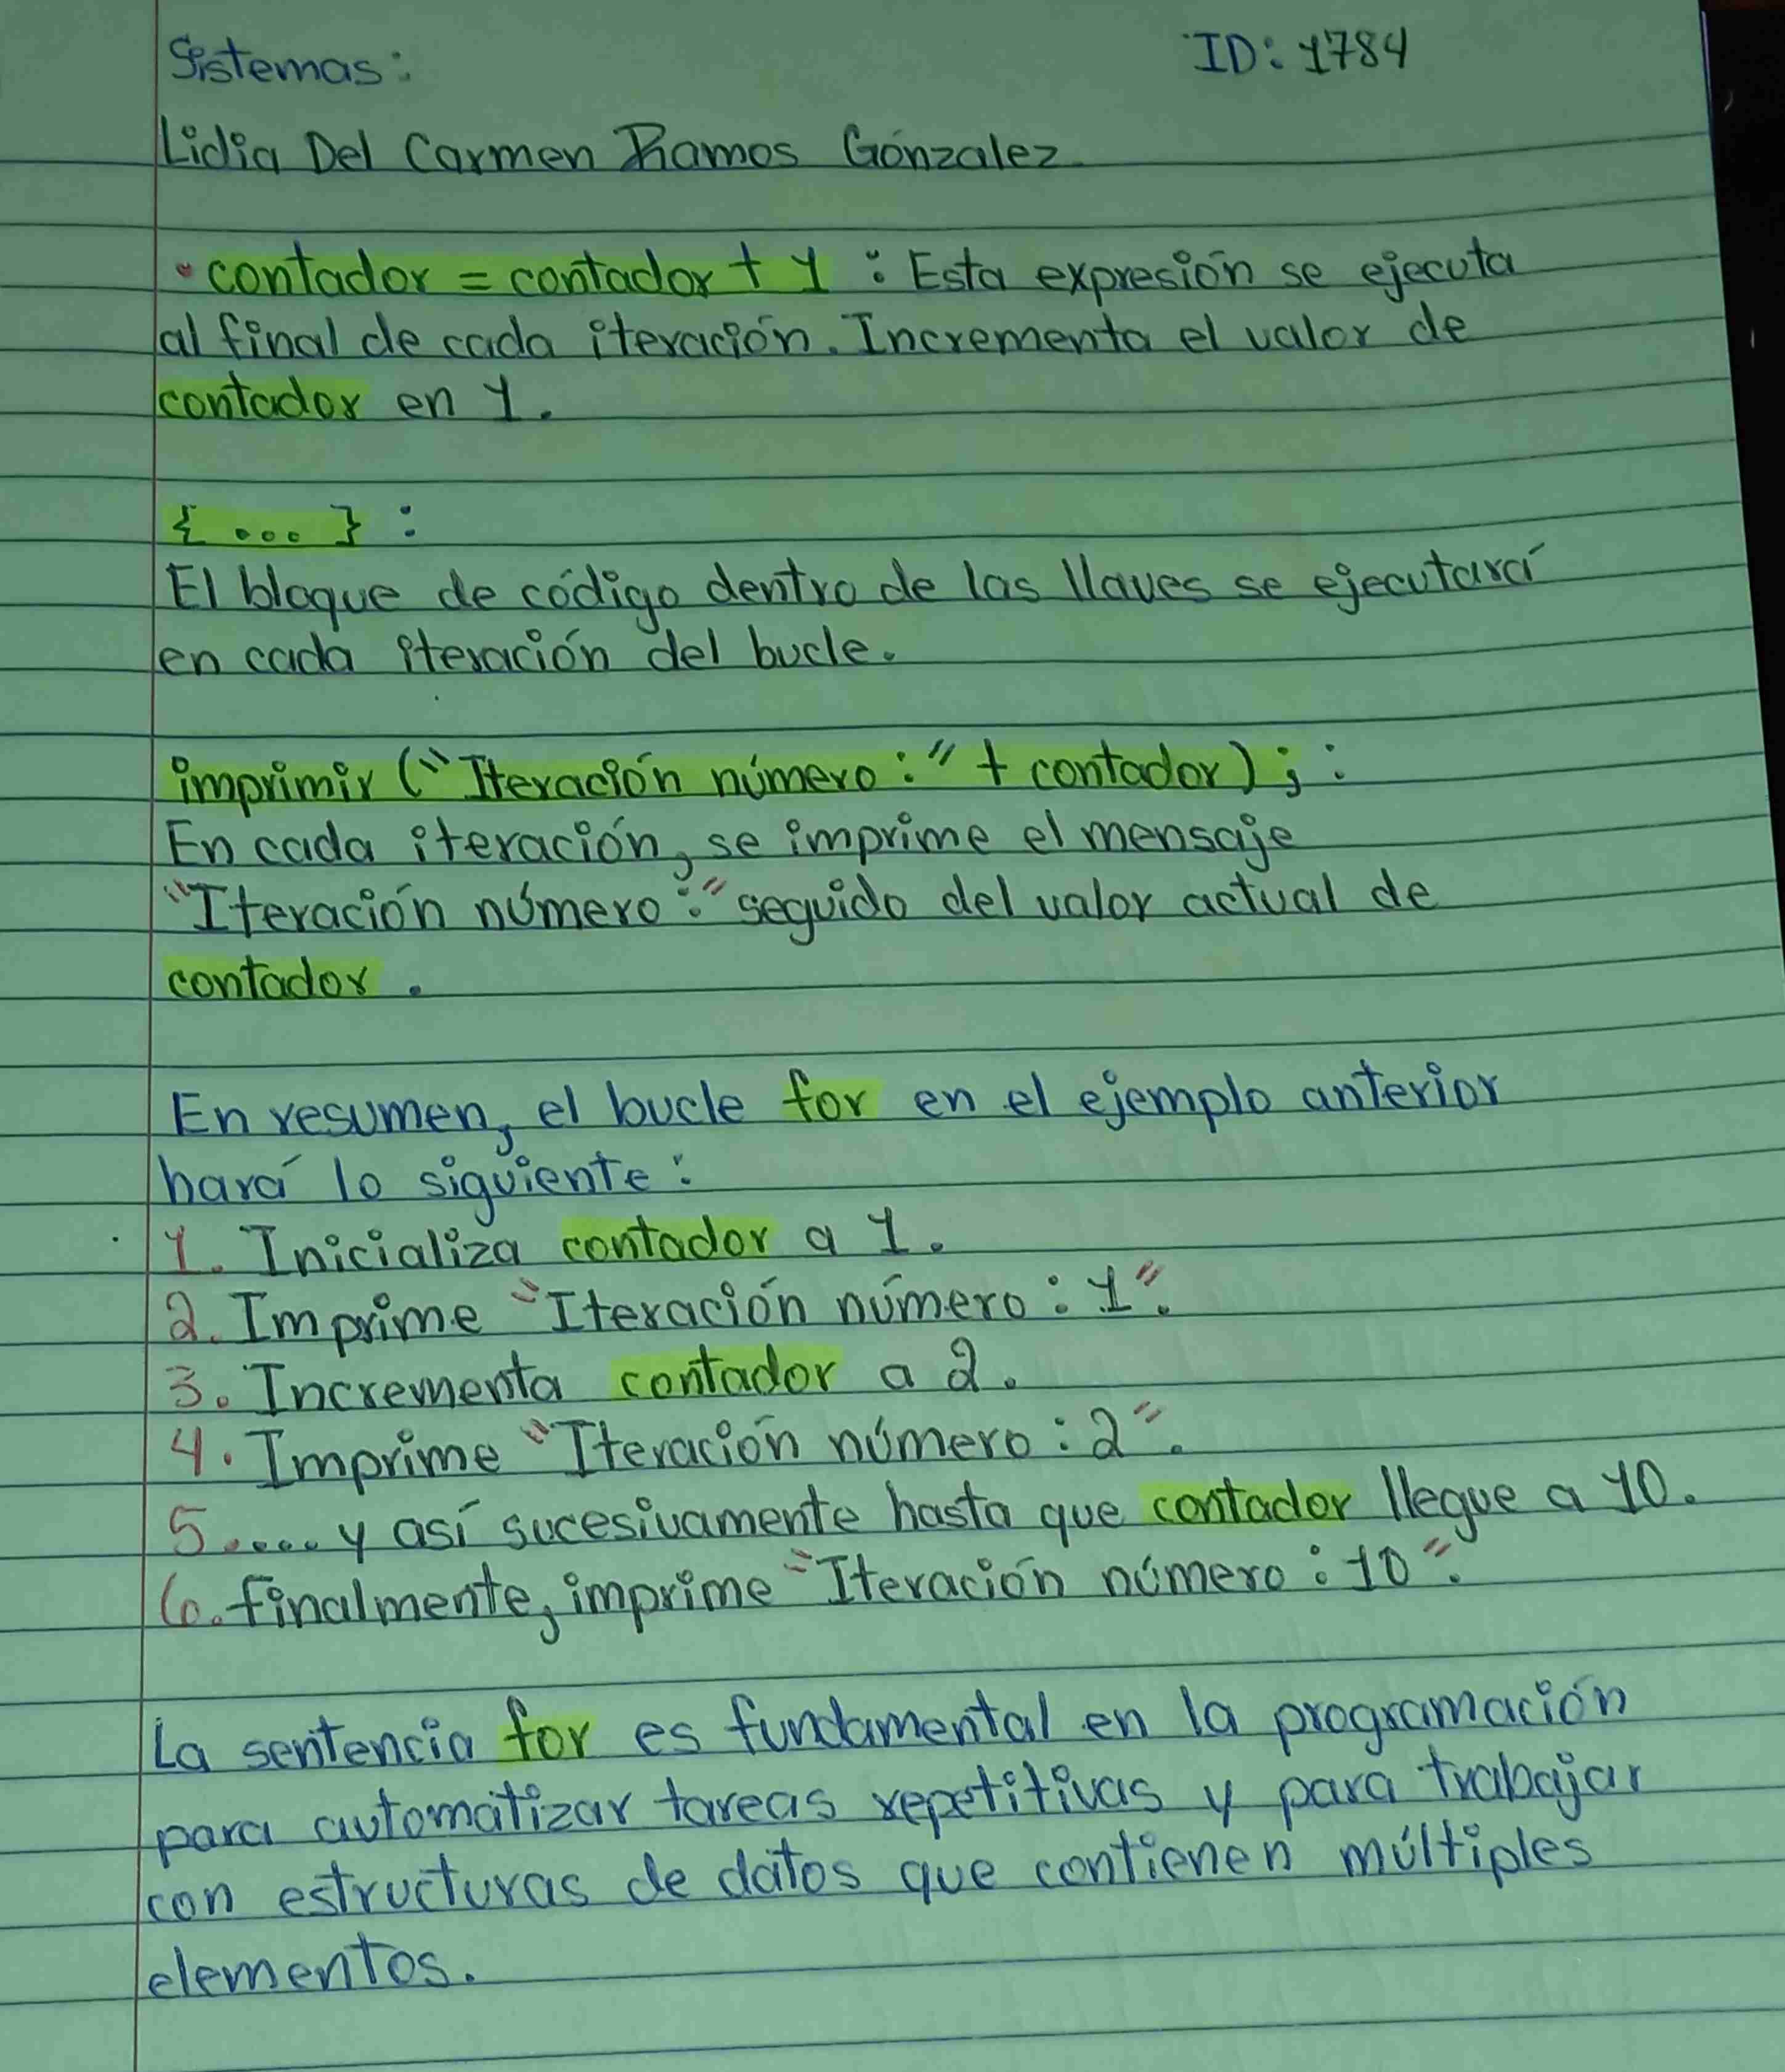 Sistemas:
ID: 1784
Lidia Del Carmen Ramos Gónzalez
• contador = contador + 1 : Esta expresión se ejecuta
al final de cada iteración. Incrementa el valor de
contador en 1.
{ ... } :
El bloque de código dentro de las llaves se ejecutará
en cada iteración del bucle.
imprimir ("Iteración número:" + contador) ; :
En cada iteración, se imprime el mensaje
"Iteración número:" seguido del valor actual de
contador .
En resumen, el bucle for en el ejemplo anterior
hará lo siguiente:
1. Inicializa contador a 1.
2. Imprime "Iteración número: 1".
3. Incrementa contador a 2.
4. Imprime "Iteración número: 2".
5. .... y así sucesivamente hasta que contador llegue a 10.
6. finalmente, imprime "Iteración número: 10".
La sentencia for es fundamental en la programación
para automatizar tareas repetitivas y para trabajar
con estructuras de datos que contienen múltiples
elementos.